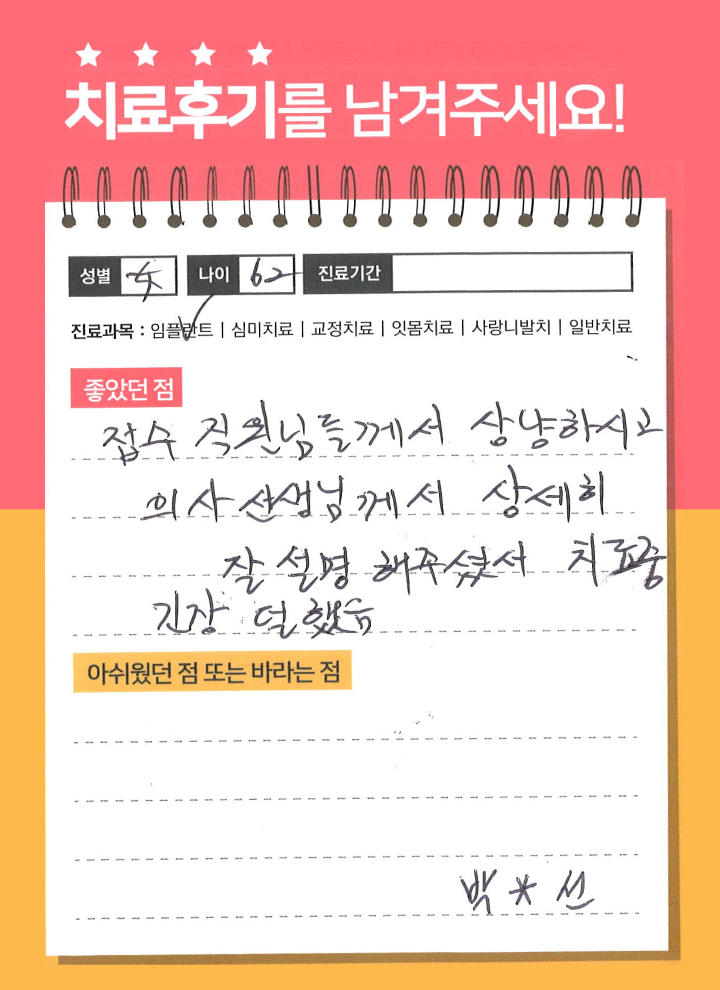 치료후기를 남겨주세요!
성별 女 나이 62 진료기간
진료과목 : 임플란트 | 심미치료 | 교정치료 | 잇몸치료 | 사랑니발치 | 일반치료
좋았던 점
접수 직원님들께서 상냥하시고
의사선생님께서 상세히
잘 설명 해주셨서 치료중
긴장 덜했음
아쉬웠던 점 또는 바라는 점
박*선